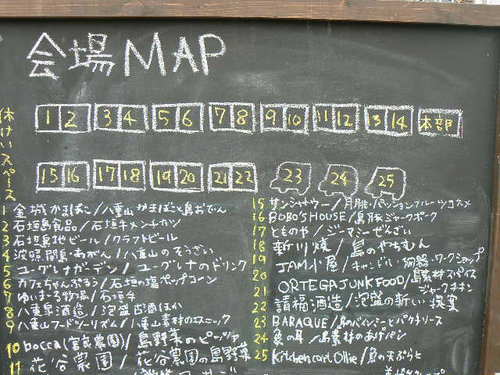 会場MAP
1 2 3 4 5 6 7 8 9 10 11 12 13 14 本部
休けいスペース
15 16 17 18 19 20 21 22 23 24 25
1 金城かまぼこ/八重山かまぼこと島おでん
2 石垣島食品/石垣牛メンチカツ
3 石垣島地ビール/クラフトビール
4 波照間島あがん/八重山のそうざい
5 ユーグレナガーデン/ユーグレナのドリンク
6 カフェちゃんぷるぅ/石垣の塩ポップコーン
7 ゆいまーる牧場/石垣牛
8 八重泉酒造/泡盛古酒ほか
9 八重山フードツーリズム/八重山素材のエスニック
10 bocca(宮良農園)/島野菜のピッツァ
11 花谷農園/花谷農園の島野菜
15 サンシナワー/月桃・パッションフルーツコスメ
16 BOBO'S HOUSE/島豚ジャークポーク
17 とものや/ジーマミーぜんざい
18 新川焼/島のやちむん
19 JAM小屋/キャンドル・陶器・ワークショップ
20
21 ORTEGA JUNK FOOD/島素材スパイス ジャークチキン
22 請福酒造/泡盛の新しい提案
23 BARAQUE/島のパンミーとパクチーソース
24 魚の耳/島素材のあげパン
25 Kitchen cart Ollie/島の天ぷらと